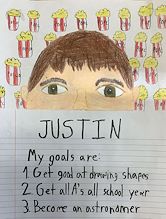 JUSTIN
My goals are:
1 Get good at drawing shapes
2. Get all A's all school year
3. Become an astronomer